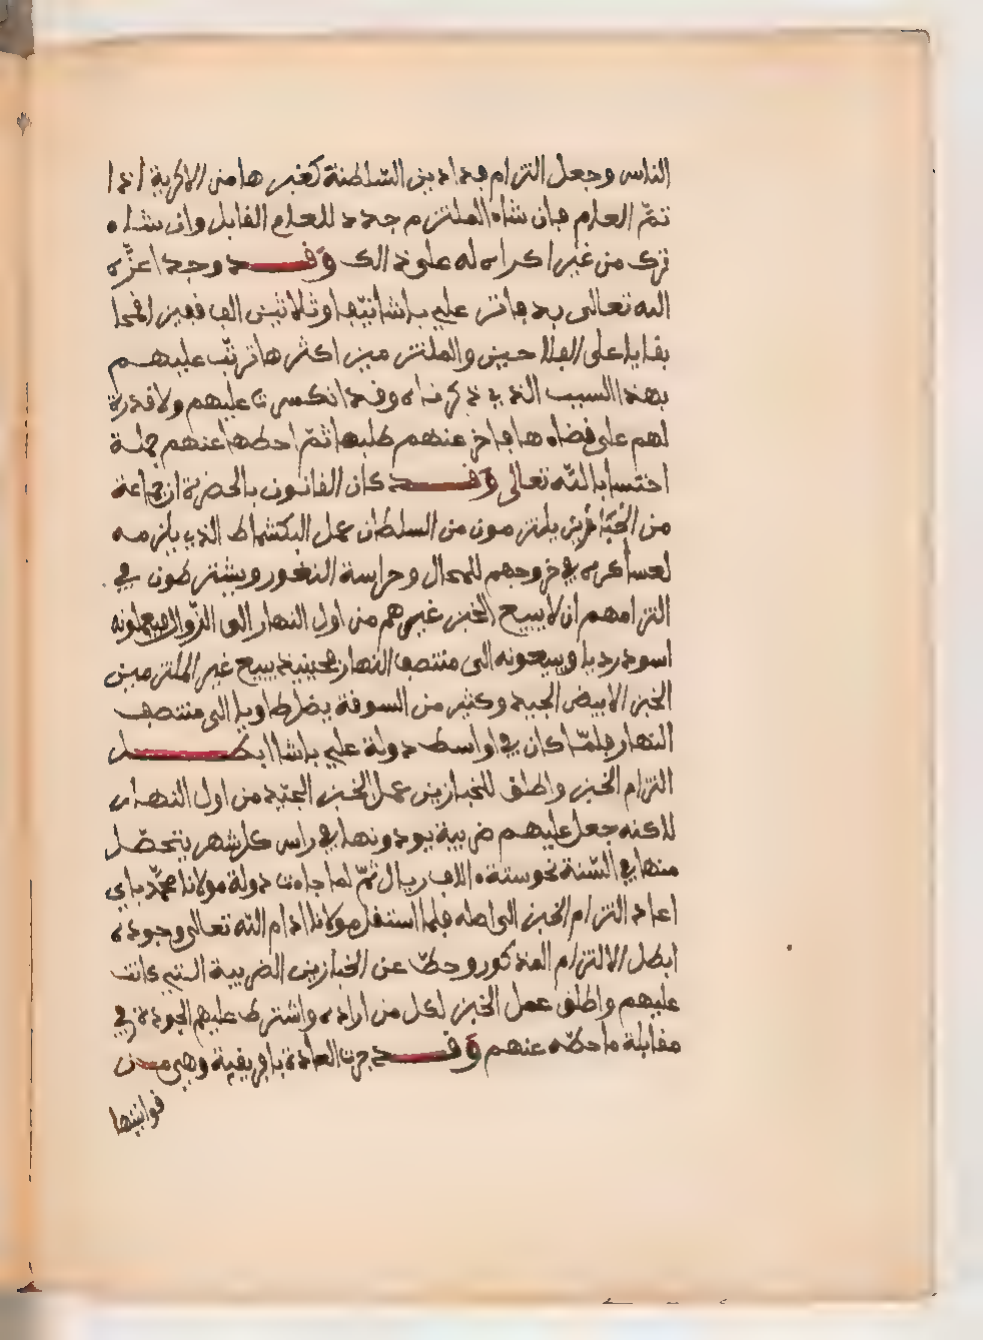 الناس وجعل التزام فدادين السلطنة كغيرها من الاكرية اذا
تمّ العام فان شاء الملتزم جدد للعام القابل وان شاء
ترك من غير اكراه له على ذالك وَقـد وجد اعزّه
الله تعالى بدفاتر علي باشا نيّفا وثلاثين الف قفيز قمحا
بقايا على الفلاحين والملتزمين اكثرها ترتّب عليهم
بهذا السبب الذي ذكرناه وقد انكسرت عليهم ولا قدرة
لهم على قضاءها فاخر عنهم طلبها ثمّ احطها عنهم جملة
احتسابا لله تعالى وَقـد كان القانون بالحضرة ان جماعة
من الخبّازين يلتزمون من السلطان عمل البكشماط الذي يلزمه
لعساكره في خروجهم للمحال وحراسة الثغور ويشترطون في
التزامهم ان لا يبيع الخبز غيرهم من اول النهار الى الزّوال فيعملونه
اسود رديا ويبيعونه الى منتصف النهار فحينيذ يبيع غير الملتزمين
الخبز الابيض الجيد وكثير من السوقة يضل طاويا الى منتصف
النهار فلمّا كان في اواسط دولة علي باشا ابطـل
التزام الخبز واطلق للخبازين عمل الخبز الجيّد من اول النهار
لاكنه جعل عليهم ضريبة يودونها في راس كل شهر يتحصّل
منها في السّنة نحو ستة ءالاف ريال ثمّ لما جاءت دولة مولانا محمّد باي
اعاد التزام الخبز الى اصله فلما استقل مولانا ادام الله تعالى وجوده
ابطل الالتزام المذكور وحطّ عن الخبازين الضريبة التي كانت
عليهم واطلق عمل الخبز لكل من اراده واشترط عليهم الجودة في
مقابلة ما حطّه عنهم وَقـد جرت العادة بافريقية وهي من
قوانينها